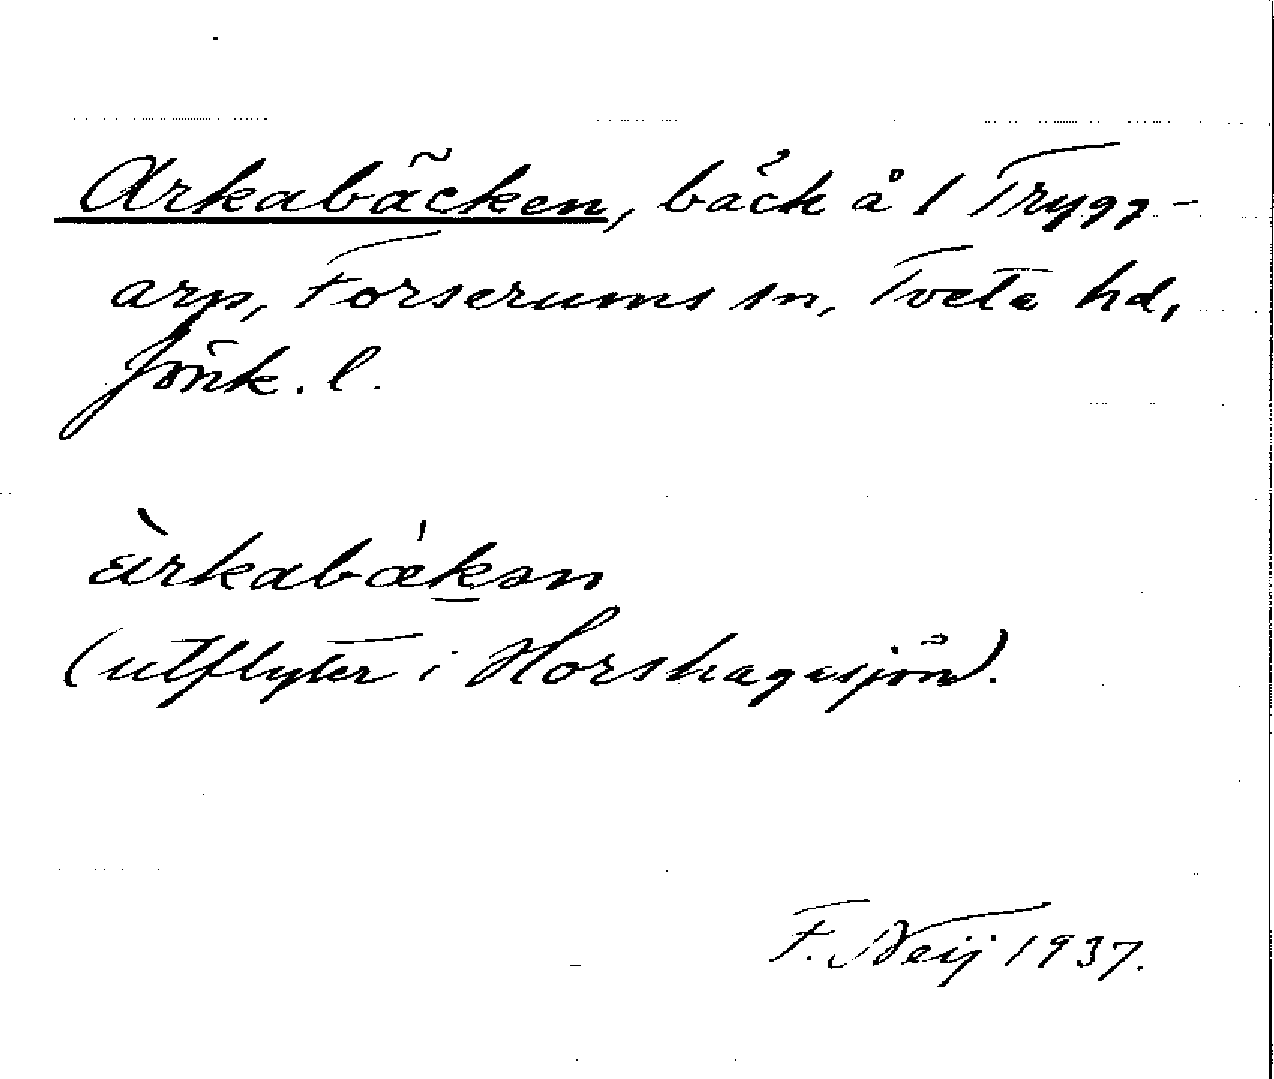 Arkabäcken, bäck å 1 Trygg-
arp, Forserums sn, Tveta hd,
Jönk. l.
àrkabæ̍kən
(utflyter i Horshagasjön).
F. Neij 1937.